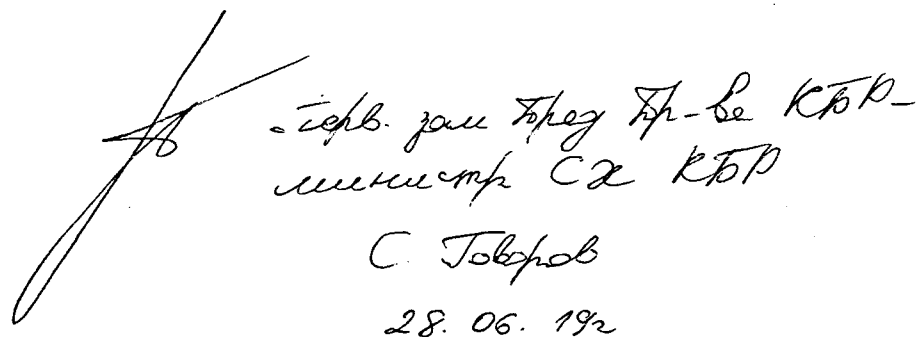 Перв. зам Пред Пр-ва КБР-
министр СХ КБР
С. Говоров
28. 06. 19г